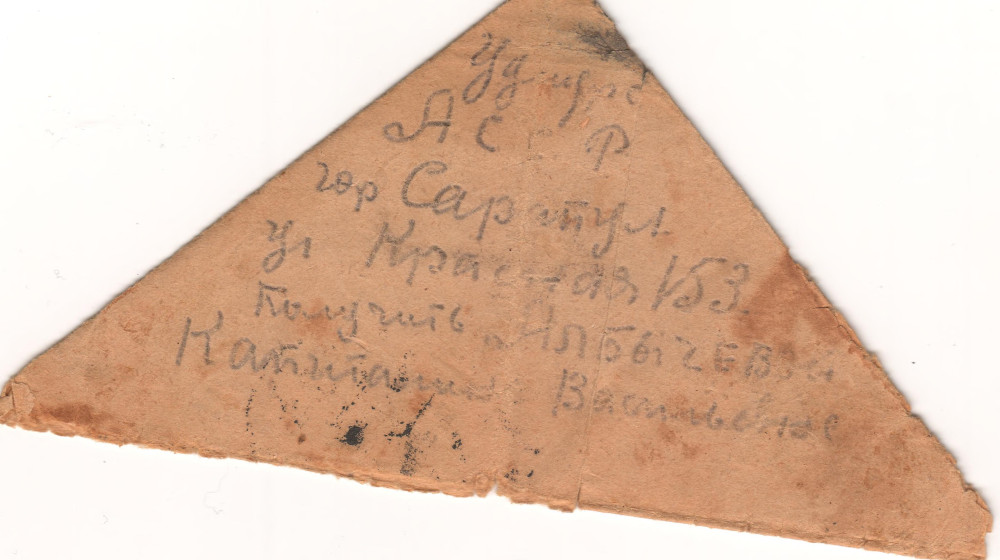 Удмурс
АС Р
гор Сарапул
ул Красная 153
Получить
Капиталине Васильевне